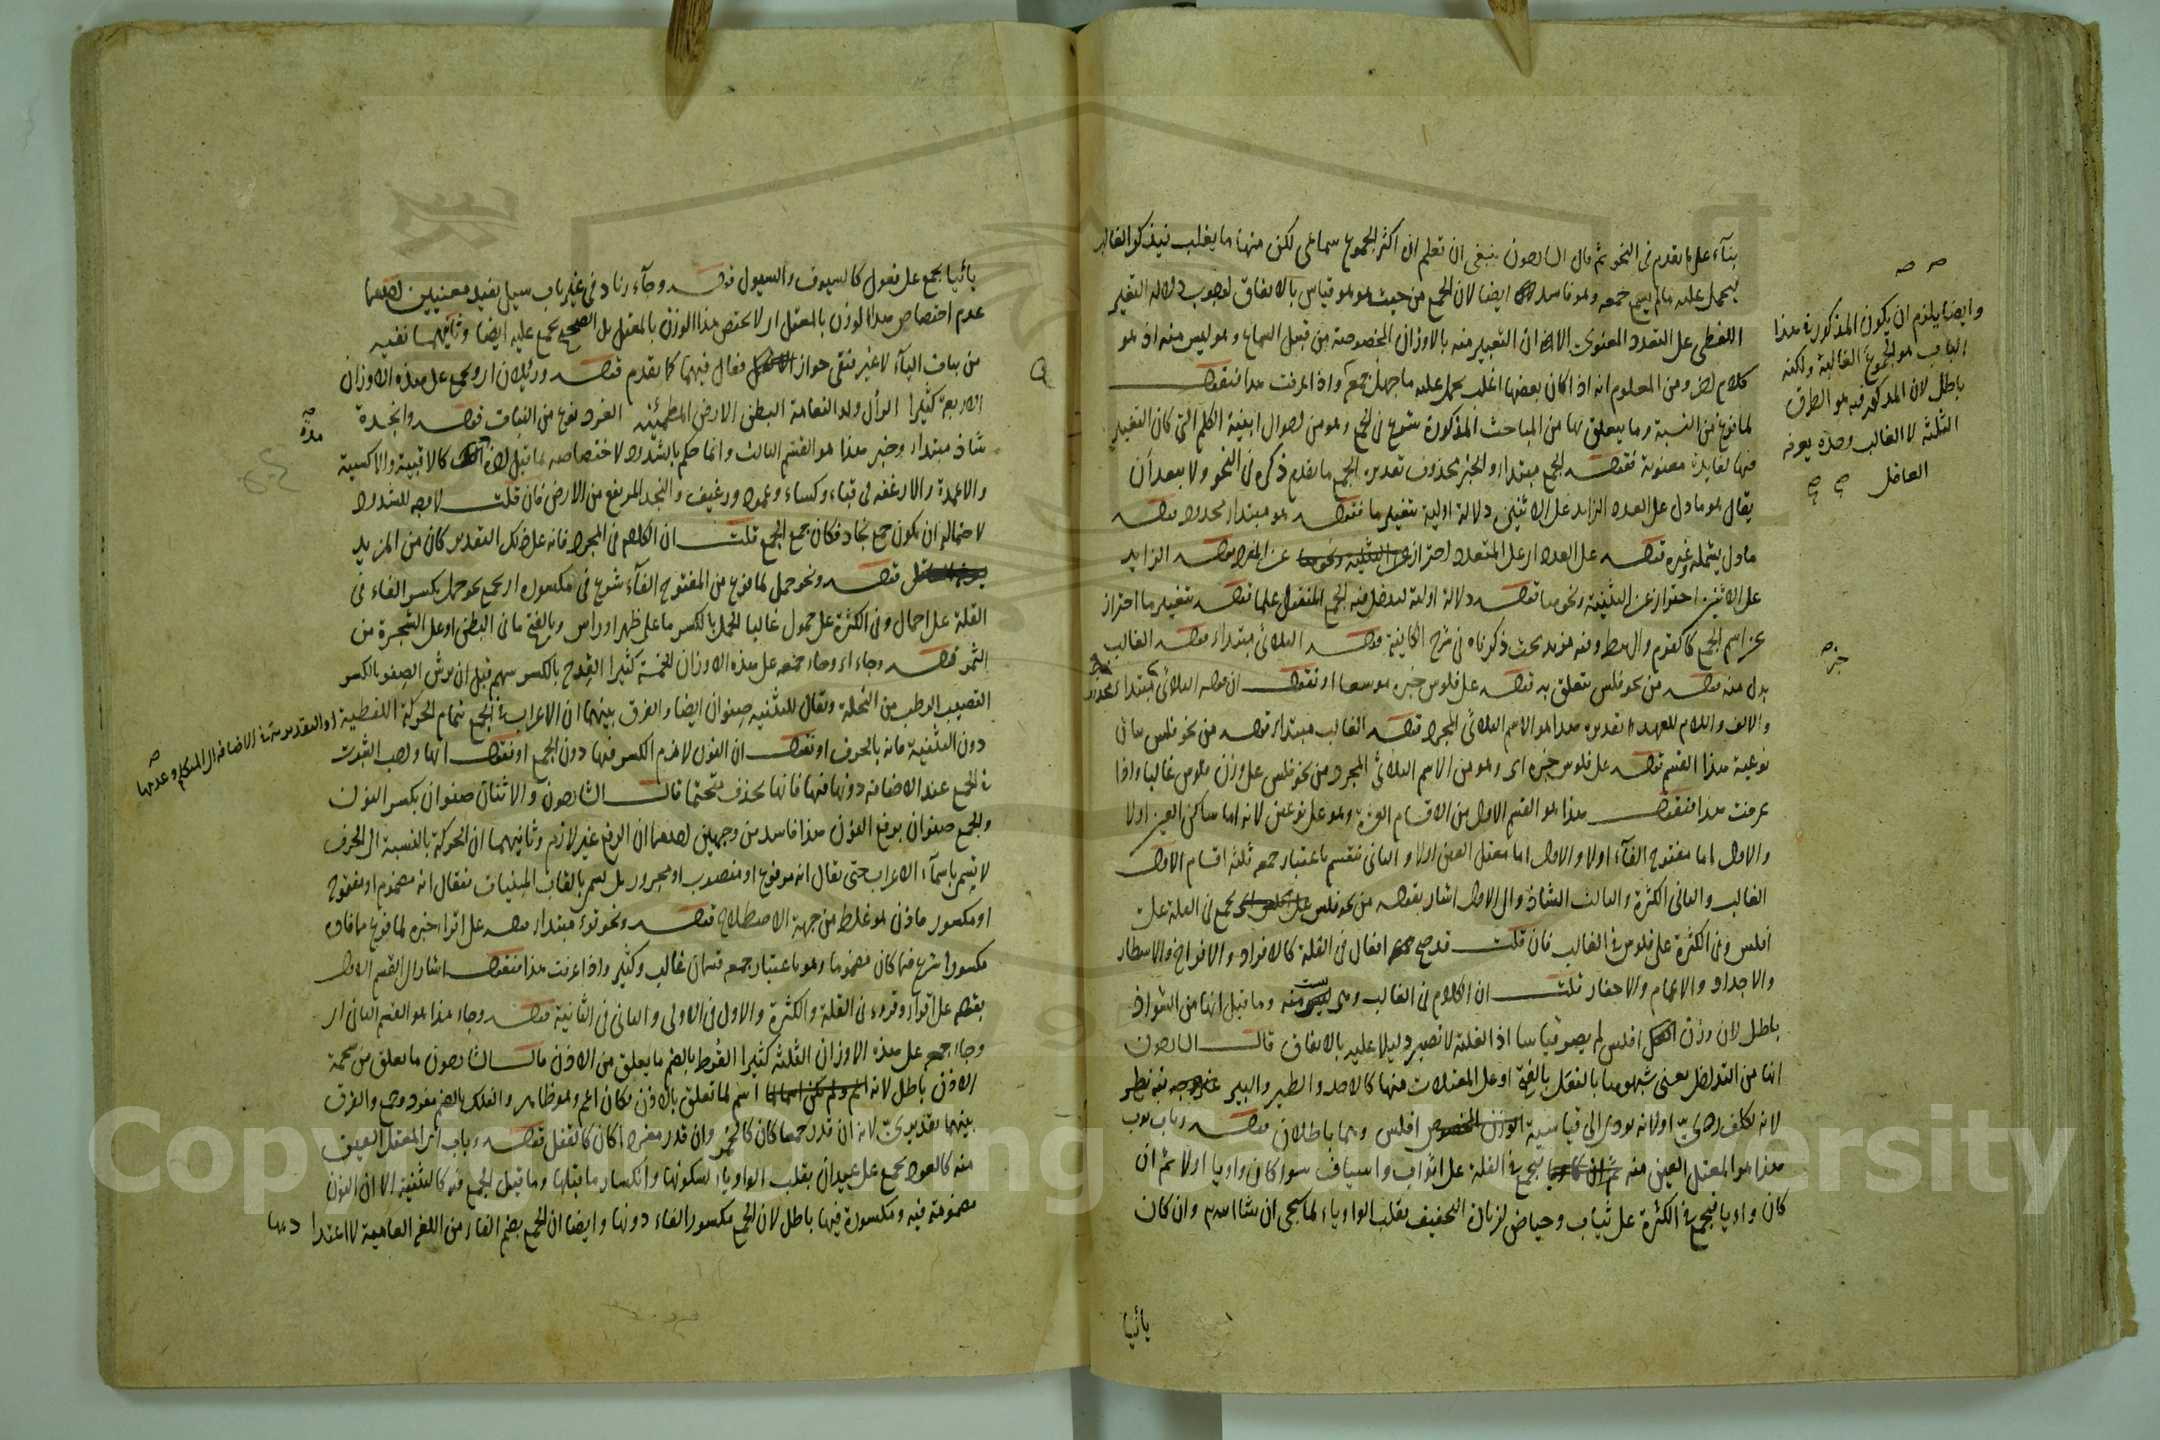 بناء على ما تقدم في النحو ثم قال الشارحون ينبغي ان تعلم ان اكثر الجموع سماعي لكن منها ما يغلب فيذكر الغالب
ليحمل عليه ما لم يسمع جمعه وهو فاسد ايضا لان الجمع من حيث هو هو قياس بالاتفاق لوجوب دلالة التغير
اللفظي على التعدد المعنوي الا ان التعبير منه بالاوزان المخصوصة من قبيل السماع وهو ليس منه اذ هو
كلام ومن المعلوم انه اذا كان بعضها اغلب يحمل عليه ما جهل جمعه واذا عرفت هذا فنقول
لما فرغ من النسبة وما يتعلق بها من المباحث المذكورة شرع في الجمع وهو من احوال ابنية الكلم التي كان التغيير
فيها لفايدة معنوية فقوله الجمع مبتداء والخبر محذوف تقديره الجمع ما تقدم ذكره في النحو ولا يبعد ان
يقال هو ما دل على العدد الزايد على الاثنين دلالة اولية بتغيير ما فقوله هو مبتداء محذوف قوله
ما دل يشمله وغيره قوله على العدد اي على المتعدد احتراز عن المفرد قوله الزايد
على الاثنين احتراز عن التثنية ونحوها قوله دلالة اولية ليدخل فيه الجمع المنقول علما قوله بتغيير ما احتراز
عن اسم الجمع كالقوم والرهط وفيه مزيد بحث ذكرناه في شرح الكافية قوله الثلاثي مبتداء قوله الغالب
بدل منه قوله من نحو فلس يتعلق به قوله على فلوس خبره او نقول ان قوله الثلاثي مبتدا محذوف
والالف واللام للعهد تقديره هذا هو الاسم الثلاثي المجرد قوله الغالب مبتداء قوله من نحو فلس بيان
نوعية هذا القسم قوله على فلوس خبره اي وهو من الاسم الثلاثي المجرد من نحو فلس على وزن فلوس غالبا واذا
عرفت هذا فنقول هذا هو القسم الاول من الاقسام العشرة وهو على نوعين لانه اما ساكن العين او لا
والاول اما مفتوح الفاء او لا والاول اما معتل العين او لا والثاني ينقسم باعتبار جمعه ثلثة اقسام الاول
الغالب والثاني الكثرة والثالث الشاذ والى الاول اشار بقوله من نحو فلس يجمع في القلة على
افلس وفي الكثرة على فلوس في الغالب فان قلت قد صح افعال في القلة كالافراد والافراخ والاسطار
والاجداد والاعمام والاحفار قلت ان الكلام في الغالب وهي ليست منه وما قيل انها من الشواذ
باطل لان وزن افلس لم يصر قياسا اذ الغلبة لا تصير دليلا عليه بالاتفاق قال الشارحون
انها من التداخل يعني شبهوها بالفعل بالفتح او على المعتلات منها كالاحد والطير والبير وجه فيه نظر
لانه تكلف او لانه يودي الى قياسية افلس وهما باطلان قوله وباب ثوب
هذا هو المعتل العين منه يجمع في القلة على اثواب واسياف سوا كان واويا او لا ثم ان
كان واويا فيجمع في الكثرة على ثياب وحياض لزيادة التخفيف بقلب الواو ياء كما سيجي ان شا الله وان كان
يائيا
وايضا يلزم ان يكون المذكور في هذا
الباب هو الجموع الغالبة ولكنه
باطل لان المذكور فيه هو الطرق
الثلثة لا الغالب وحده يعرفه
العاقل
خبره
يائيا يجمع على فعول كالسيوف والسيول قوله وجاء زناد في غير باب سيل يفيد معنيين احدهما
عدم اختصاص هذا الوزن بالمعتل اي لا يختص هذا الوزن بالمعتل بل الصحيح يجمع عليه ايضا وثانيهما نفيه
من بنات الياء لا غير فبقي جواز فعال فيهما كما تقدم قوله ورئلان اي ويجمع على هذه الاوزان
الاربعة كثيرا الرأل ولد النعامة البطن الارض المطمئنة الغرد نوع من النبات قوله وانجدة
شاذ مبتداء وخبر هذا هو القسم الثالث وانما حكم بالشذوذ لاختصاصه بما قبل اخره كالاقبية والاكسية
مدة
والاعمدة والارغفة في قباء وكساء وعمود ورغيف والنجد المرتفع من الارض فان قلت لا وجه للشذوذ
لاحتمال ان يكون جمع نجاد فكان جمع الجمع قلت ان الكلام في المجرد فانه على ذلك التقدير كان من المزيد
قوله ونحو حمل لما فرغ من المفتوح الفاء شرع في مكسوره اي يجمع نحو حمل بكسر الفاء في
القلة على احمال وفي الكثرة على حمول غالبا الحمل بالكسر ما على ظهر او راس وبالفتح ما في البطن او على الشجرة من
الثمر قوله وجاء اي وجاء جمعه على هذه الاوزان الخمسة كثيرا القدح بالكسر سهم قبل ان يرش الصنو بالكسر
القضيب الرطب من النخلة ويقال للتثنية صنوان ايضا والفرق بينهما ان الاعراب في الجمع تمام الحركة اللفظية او التقديرية في الاضافة الى المتكلم وعدمها
دون التثنية فانه بالحرف او نقول ان النون لازم الكسر فيها دون الجمع او نقول انها واجب الثبوت
في الجمع عند الاضافة دونها فيها فانها تحذف حتما قال الشارحون والاثنان صنوان بكسر النون
والجمع صنوان برفع النون هذا فاسد من وجهين احدهما ان الرفع غير لازم وثانيهما ان الحركة بالنسبة الى الحرف
لا تسم باسماء الاعراب حتى يقال انه مرفوع او منصوب او مجرور بل تسم بالقاب المبنيات فيقال انه مضموم او مفتوح
او مكسور ماذن هو غلط من جهة الاصطلاح قوله ونحو قرء مبتداء قوله على اقراء خبره لما فرغ ما فاؤه
مكسورا شرع فيما كان مضموما وهو باعتبار جمعه قسمان غالب وكثير واذا عرفت هذا فنقول اشار الى القسم الاول
بقوله على اقراء وقروء في القلة والكثرة والاول في الاولى والثاني في الثانية قوله وجاء هذا هو القسم الثاني اي
وجاء جمعه على هذه الاوزان الثلثة كثيرا القرط بالضم ما يعلق من الاذن قال الشارحون ما يعلق من شحمة
الاذن باطل لانه اسم لما تعلق بالاذن فكان اعم وهو ظاهر والفلك بالضم مفرد وجمع والفرق
بينهما تقديري لانه ان قدر جمعا كان كالحمر وان قدر مفردا كان كالقفل قوله وباب المعتل العين
منه كالعود يجمع على عيدان بقلب الواو ياء لسكونها وانكسار ما قبلها وما قيل الجمع فيه كالتثنية الا ان النون
مضمومة فيه ومكسورة فيها باطل لان الجمع مكسور الفاء دونها وايضا ان الجمع بضم الفاء من اللغة العامية لا اعتداد بها